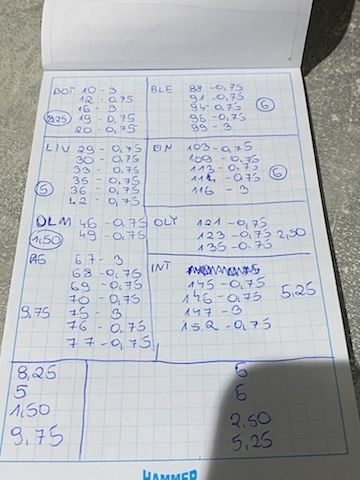 DOT 10 - 3
12 - 0,75
16 - 3
8,25 19 - 0,75
20 - 0,75
BLE 88 - 0,75
91 - 0,75
94 - 0,75
6
96 - 0,75
99 - 3
LIV 29 - 0,75
30 - 0,75
33 - 0,75
35 - 0,75
5 36 - 0,75
42 - 0,75
EIN 103 - 0,75
109 - 0,75
113 - 0,75
114 - 0,75
6
116 - 3
DLM 46 - 0,75
1,50 49 - 0,75
OLY 121 - 0,75
123 - 0,75 2,50
135 - 0,75
AS 67 - 3
68 - 0,75
69 - 0,75
70 - 0,75
9,75 75 - 3
76 - 0,75
77 - 0,75
INT
145 - 0,75
146 - 0,75 5,25
147 - 3
152 - 0,75
8,25
5
1,50
9,75
6
6
2,50
5,25
HAMMER